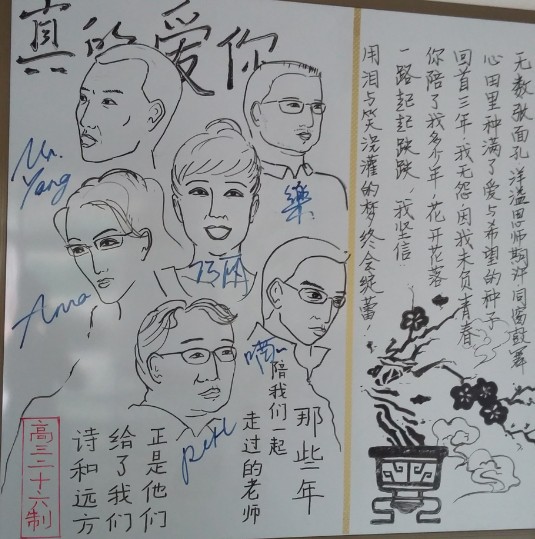 真的爱你
Mr.
Yang
樂
Anna
那些年
陪我们一起
走过的老师
正是他们
给了我们
诗和远方
高三二十六制
无数张面孔洋溢恩师期许同窗鼓舞
心田里种满了爱与希望的种子
回首三年,我无怨因我未负青春
你陪了我多少年 花开花落
一路起起跌跌,我坚信
用泪与笑浇灌的梦终会绽蕾!